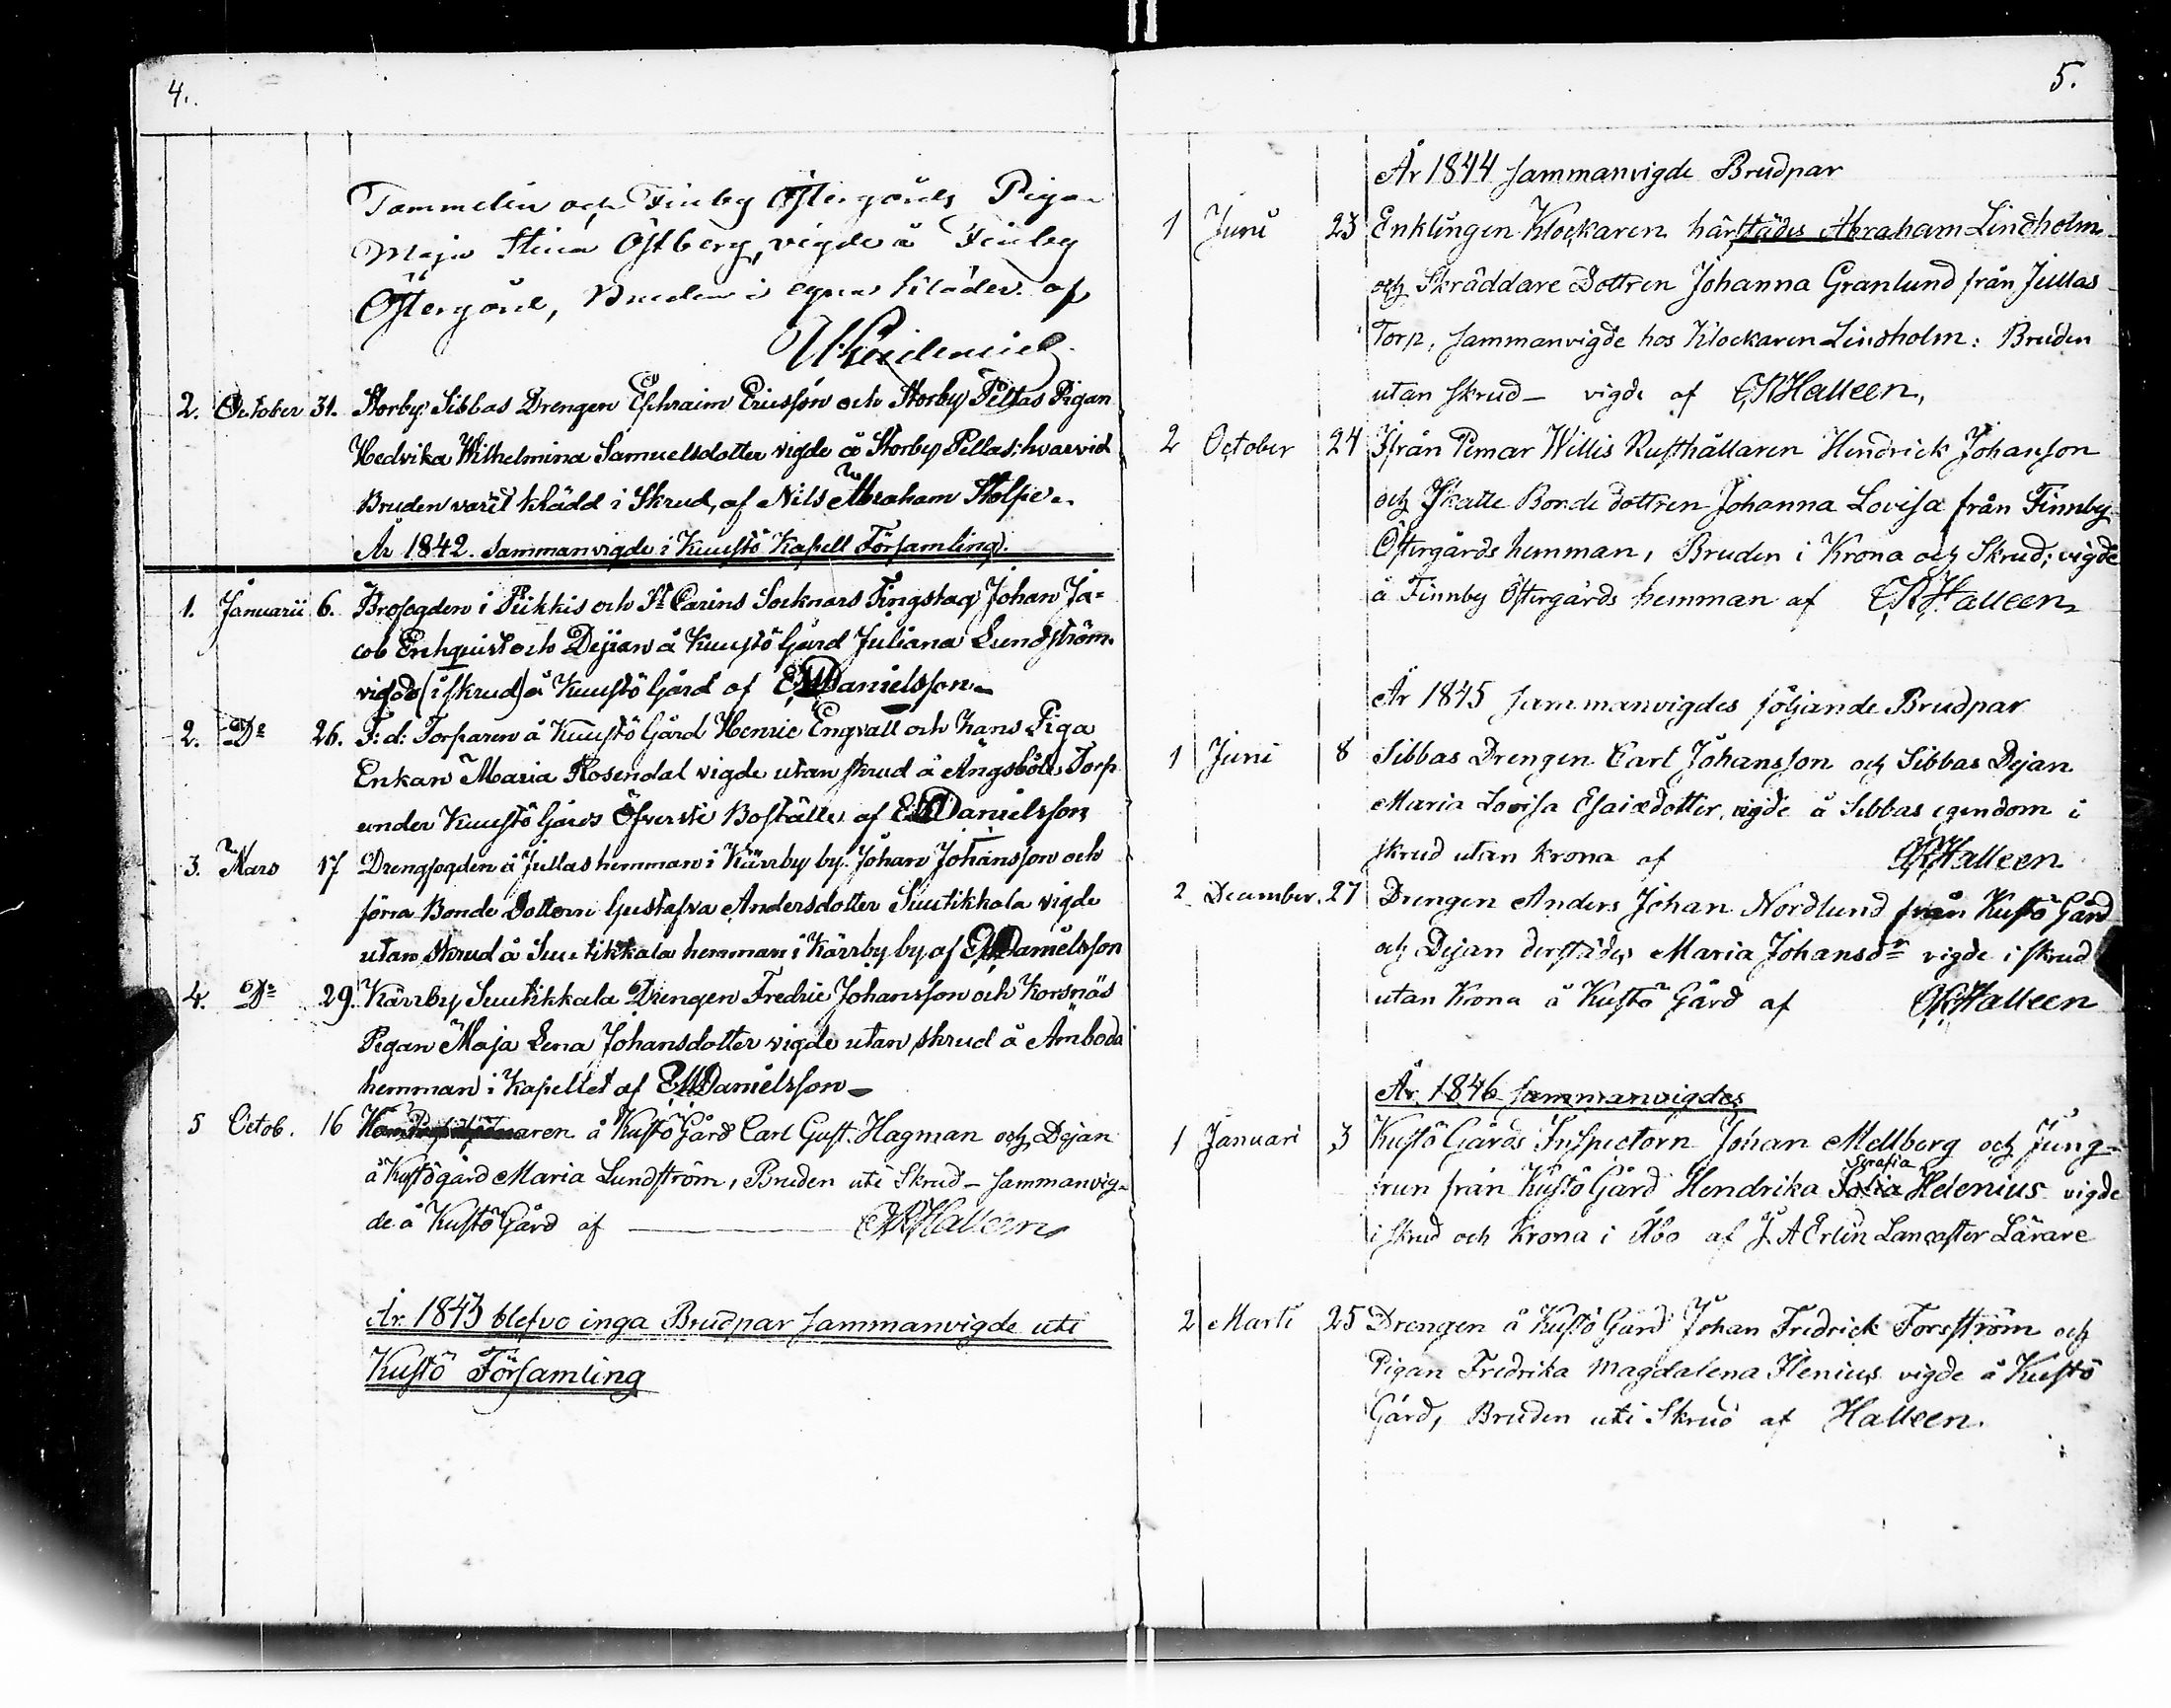 4.
Tammelin och Finby Östergårds Pigan
Maja Stina Östberg, vigde å Finby
Östergård, Bruden i egna kläder af
2. October 31. Storby Sibbas Drengen Ephraim Ericsson och Storby Pellas Pigan
Hedvika Wilhelmina Samuelsdotter vigde å Storby Pellas; hvarvid
Bruden varit klädd i Skrud, af Nils Abraham Stolpe.
År 1842. Sammanvigde i Kuustö Kapell Församling.
1. Januarii 6. Brofogden i Piikkis och St Carins Socknars Tingslag Johan Ja=
cob Enhquist och Dejian å Kuustö Gård Juliana Lundström.
vigde (i skrud) å Kuustö Gård af EMDanielsson
2. Do 26. F: d: Torparen å Kuustö Gård Henric Engvall och hans Piga
Enkan Maria Rosendal vigde utan skrud å Ängsböle Torp
under Kuustö Gårds Öfverste Boställe af EMDanielsson
3. Mars 17 Drengfogden å Jullas hemman i Kärrby by Johan Johansson och
förra Bonde Dottern Gustafva Andersdotter Suutikkala vigde
utan skrud å Suutikkala hemman i Kärrby by af EMDanielsson
4. Do 29. Kärrby Suutikkala Drengen Fredric Johansson och Korsnäs
Pigan Maja Lena Johansdotter vigde utan skrud å Ämboda
hemman i Kapellet af EMDanielsson
5 Octob. 16 å Kustö Gård Carl Gust. Hagman och Dejan
å Kustögård Maria Lundström, Bruden uti Skrud – sammanvig-
de å Kustö Gård af CRHalleen
År 1843 blefvo inga Brudpar sammanvigde uti
Kustö Församling
5.
År 1844 sammanvigde Brudpar
1 Juni 23 Enklingen Klockaren härstädes Abraham Lindholm
och Skräddare Dottren Johanna Granlund från Jullas
Torp, sammanvigde hos Klockaren Lindholm: Bruden
utan skrud – vigde af CRHalleen,
2 October 24 Ifrån Pemar Willis Rusthållaren Hendrick Johanson
och Skatte Bonde dottren Johanna Lovisa från Finnby
Östergårds hemman, Bruden i Krona och Skrud; vigde
å Finnby Östergårds hemman af CRHalleen
År 1845 sammanvigdes följande Brudpar
1 Juni 8 Sibbas Drengen Carl Johansson och Sibbas Dejan
Maria Lovisa Esaiædotter, vigde å Sibbas egendom i
skrud utan krona af CRHalleen
2 December. 27 Drengen Anders Johan Nordlund från Kustö Gård
och Dejan derstädes Maria Johansdr vigde i skrud
utan Krona å Kustö Gård af CRHalleen
År 1846 sammanvigdes
1 Januari 3 Kustö Gårds Inspectorn Johan Mellberg och Jung-
frun från Kustö Gård Hendrika Sofia Serafia Helenius vigde
i skrud och krona i Åbo af J. A Erlin Lancaster Lärare
2 Marti 25 Drengen å Kustö Gård Johan Fredrick Forsström och
Pigan Fredrika Magdalena Flenius vigde å Kustö
Gård, Bruden uti Skrud af Halleen.